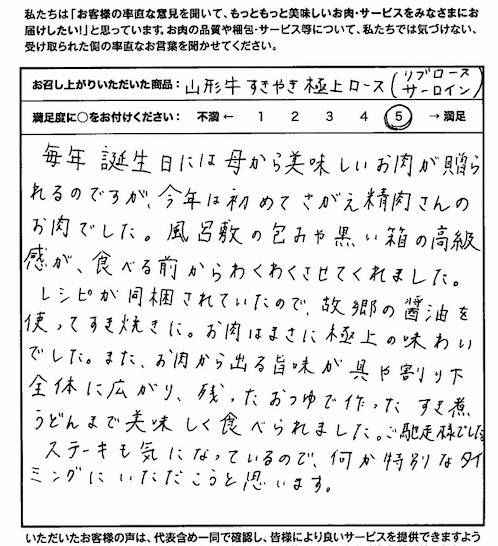 私たちは「お客様の率直な意見を聞いて、もっともっと美味しいお肉・サービスをみなさまにお
届けしたい!」と思っています。お肉の品質や梱包・サービス等について、私たちでは気づけない、
受け取られた側の率直なお言葉を聞かせてください。
お召し上がりいただいた商品: 山形牛すきやき極上ロース(リブロース サーロイン)
満足度に○をお付けください: 不満 ← 1 2 3 4 5 → 満足
毎年誕生日には母から美味しいお肉が贈ら
れるのですが、今年は初めてさがえ精肉さんの
お肉でした。風呂敷の包みや黒い箱の高級
感が、食べる前からわくわくさせてくれました。
レシピが同梱されていたので、故郷の醤油を
使ってすき焼きに。お肉はまさに極上の味わい
でした。また、お肉から出る旨味が具や割り下
全体に広がり、残ったおつゆで作ったすき煮
うどんまで美味しく食べられました。ご馳走様でした
ステーキも気になっているので、何か特別なタイ
ミングにいただこうと思います。
いただいたお客様の声は、代表含め一同で確認し、皆様により良いサービスを提供できますよう